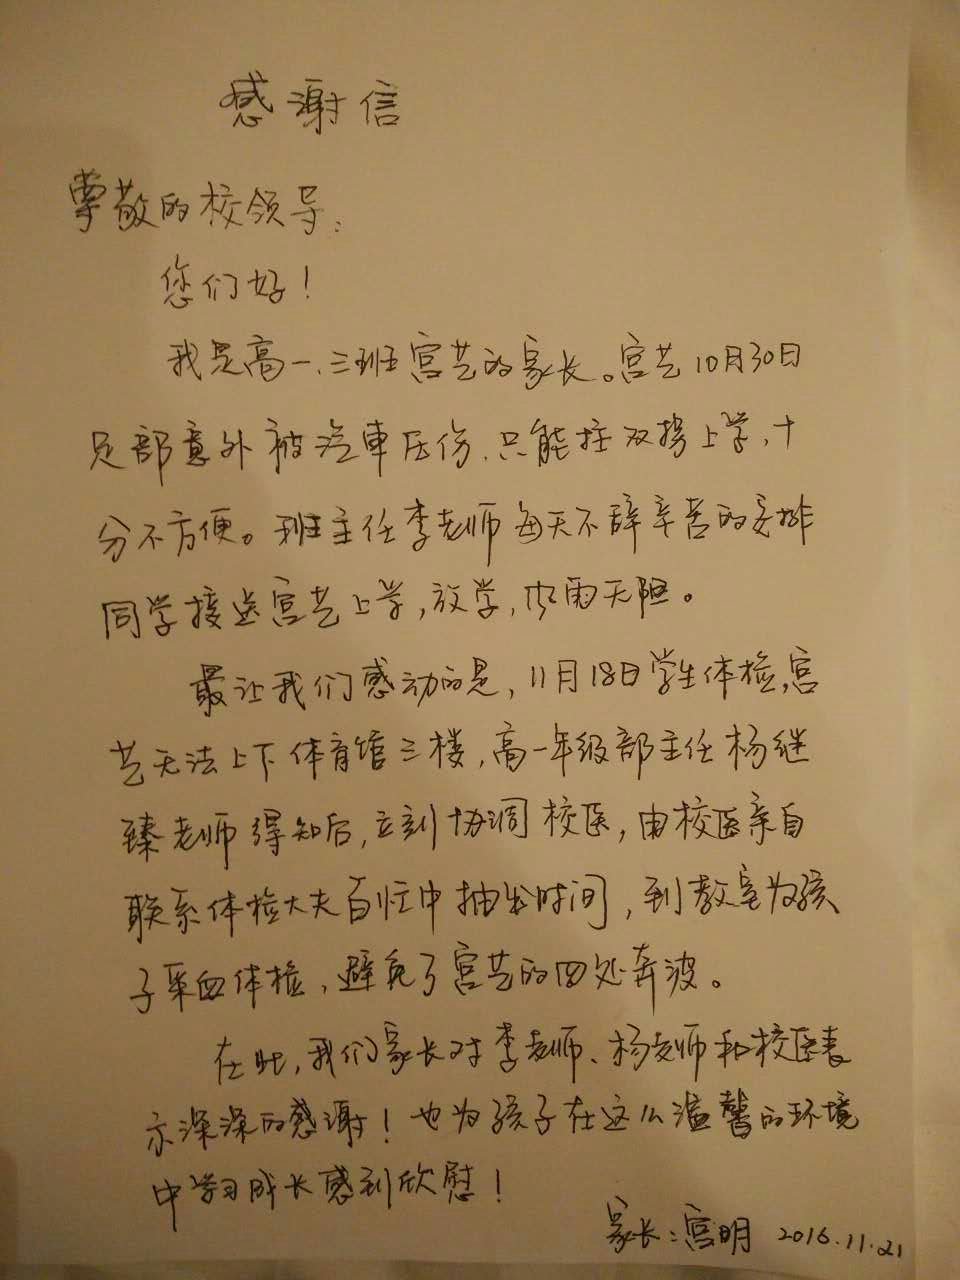 感谢信
尊敬的校领导:
您们好!
我是高一、三班宫艺的家长。宫艺10月30日
足部意外被汽車压伤,只能拄双拐上学,十
分不方便。班主任李老师每天不辞辛苦的安排
同学接送宫艺上学,放学,风雨无阻。
最让我们感动的是,11月18日学生体检,宫
艺无法上下体育馆三楼,高一年级部主任杨继
臻老师得知后,立刻协调校医,由校医亲自
联系体检大夫百忙中抽出时间,到教室为孩
子采血体检,避免了宫艺的四处奔波。
在此,我们家长对李老师、杨老师和校医表
示深深的感谢!也为孩子在这么温馨的环境
中学习成长感到欣慰!
家长:宫明 2016.11.21